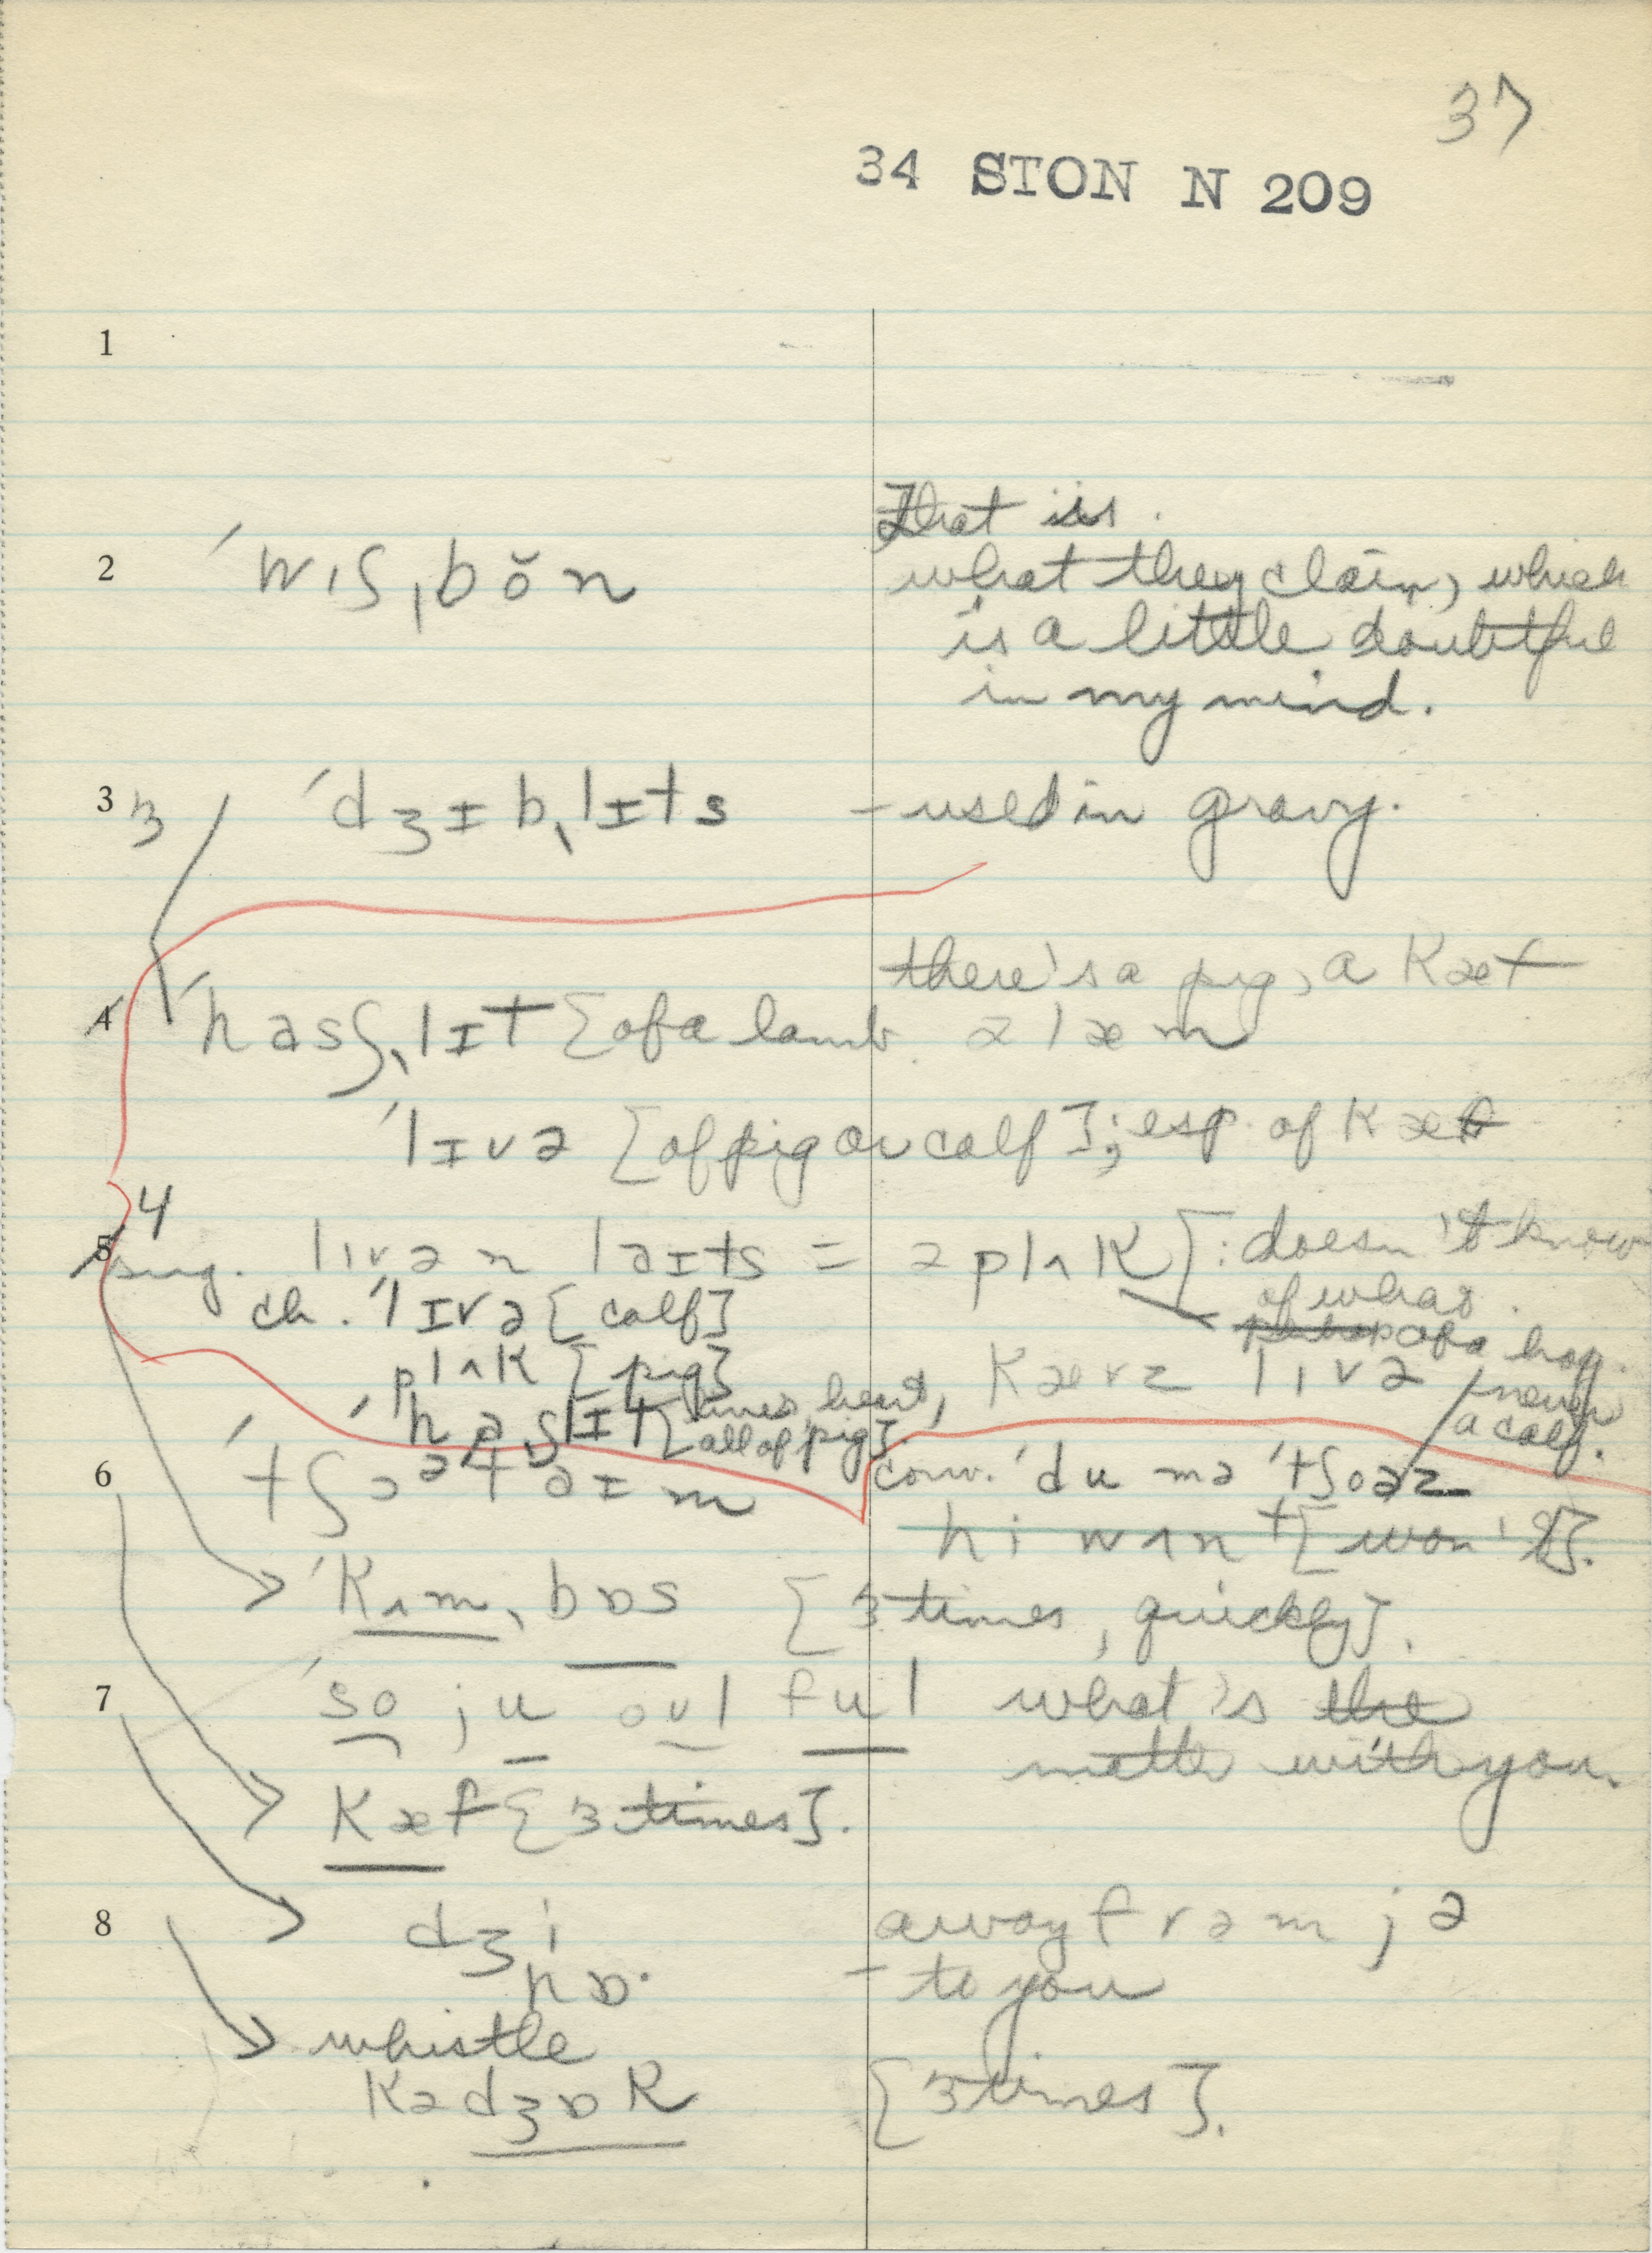 37
34 STON N 209
1
That is.
2 ˈwɪʃˌbŏn what they claim, which
is a little doubtful
in my mind.
3 3 ˈdʒɪbˌlɪts – used in gravy.
there's a pig, a kæf
4 ˈhasʃˌlɪt [of a lamb. ə læm
ˈlɪvə [of pig or calf]; esp. of kæf
4
5 sing. lɪvə n laɪts = ə plʌk [: doesn't know
of what.
ch. ˈlɪvə [calf] of a hog.
plʌk [pig] kævz lɪvə never
ˈhaslɪt [liver, heart, a calf.
all of pig].
6 ˈtʃɔətaɪm conv. ˈdu mə ˈtʃoəz
hi wʌnt [won't].
ˈkʌm, bɒs [3 times, quickly].
7 ˈso ju oul ful what's the
matter with you.
kæf [3 times].
8 dʒi away frəm jə
hɒ· – to you
whistle
kədʒɒk [3 times].